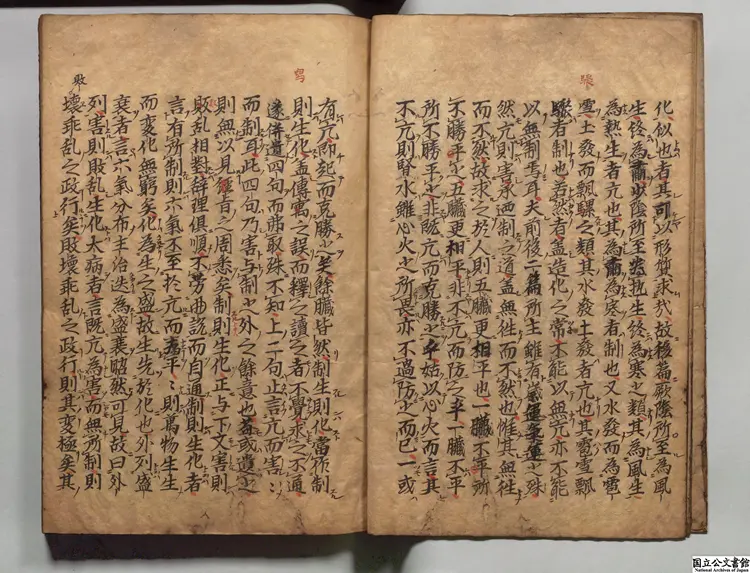 張
化似也者其可以形質求哉故後篇厥陰所至為風
生終為肅少陰所至為熱生終為寒之類其為風生
為熱生者亢也其為肅為寒者制也又水發而為雹
雪土發而飄驟之類其水發土發者亢也其雹雪飄
驟者制也若然者蓋造化之常不能以無亢亦不能
以無制焉耳夫前後二篇所主雖有歲運氣運之殊
然亢則害承迺制之道蓋無徃而不然也惟其無徃
而不然故求之於人則五臟更相平也一臟不平所
不勝平之五臟更相平非不亢而防之乎一臟不平
所不勝平之非既亢而克勝之乎姑以心火而言其
不亢則腎水雖心火之所畏亦不過防之而已一或
有亢即起而克勝之矣餘臟皆然制生則化當作制
則生化蓋傳寫之誤而釋之讀之者不覺求之不通
遂併遺四句而弗取殊不知上二句止言亢而害〻
而制耳此四句乃害與制之外之餘意也苟或遺之
則無以見經旨之周悉矣制則生化正与下文害則
敗乱相對辞理俱順不勞曲説而自通制則生化者
言有所制則六氣不至於亢而為平〻則萬物生生
而変化無窮矣化為生之盛故生先於化也外列盛
衰者言六氣分布主治迭為盛衰昭然可見故曰外
列害則敗乱生化大病者言既亢為害而無所制則
敗
壞乖乱之政行矣敗壞乖乱之政行則其変極矣其
国立公文書館
National Archives of Japan